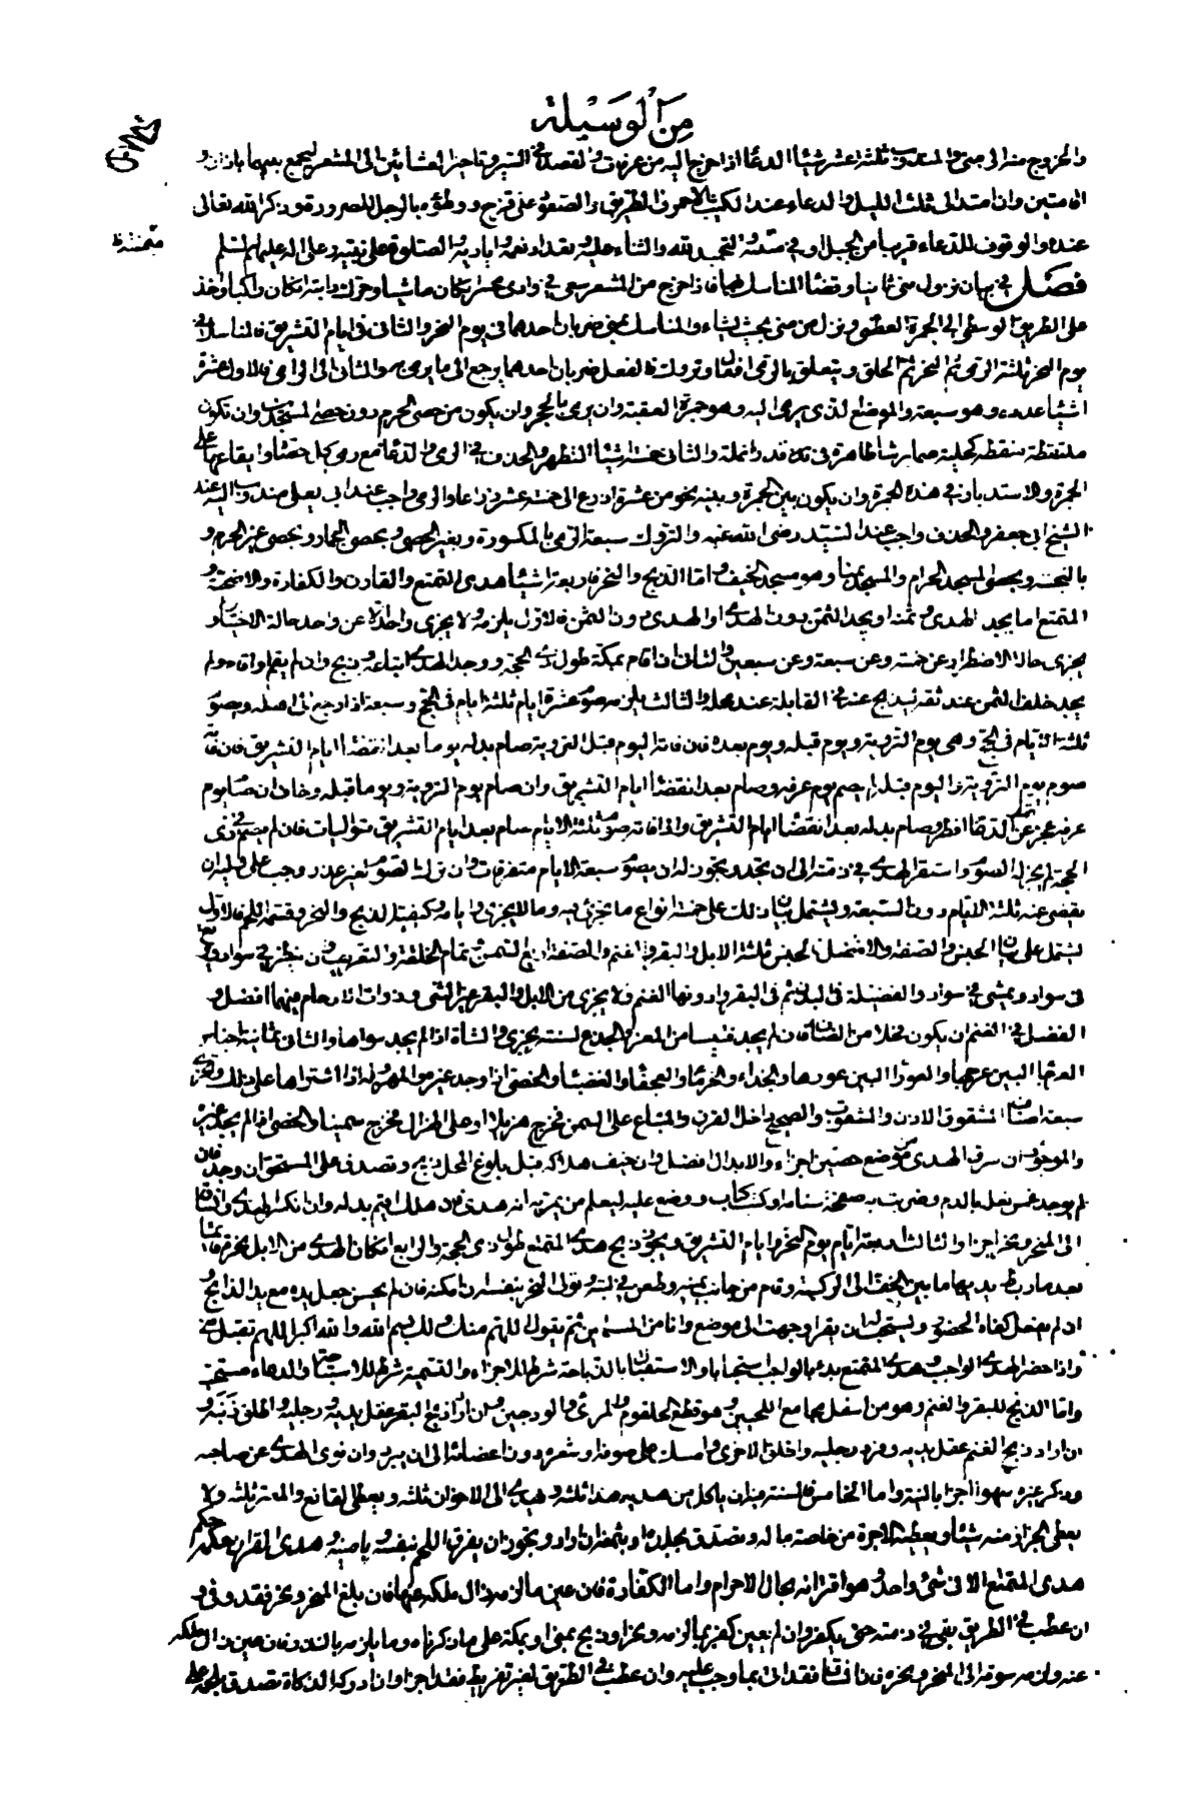 مِنَ الْوَسيْلَة
والخروج منه الى منى والمندوب ثلثة عشر شيئا الدعاء اذا خرج اليه من عرفات والقصد في السير وتاخير العشائين الى المشعر ليجمع بينهما باذان و
اقامتين وان امتد الى ثلث الليل والدعاء عند الكثيب الاحمر في الطريق والصعود على قزح ووطؤه بالرجل للصرورة وذكر الله تعالى
عنده والوقوف للدعاء قريبا من الجبل او في التحميد لله والثناء عليه وتعداد نعمه واياديه والصلوة على نبيه وعلى اله عليهم السلم
فصل في بيان نزول منى ثانيا وقضاء المناسك بها فاذا خرج من المشعر سعى في وادى محسر ان كان ماشيا وحرك دابته ان كان راكبا واخذ
على الطريق الوسطى الى الجمرة العظمى ونزل من منى بحيث يشاء والمناسك بمنى ضربان احدهما في يوم النحر والثاني في ايام التشريق فالمناسك في
يوم النحر ثلثة الرمي ثم النحر ثم الحلق ويتعلق بالرمي افعال وتروك فالفعل ضربان احدهما يرجع الى ما يرمى به والثاني الى الرامي فالاول عشرة
اشياء عدده وهو سبعة والموضع الذى يرمى اليه وهو جمرة العقبة وان يرمى بالحجر وان يكون من حصى الحرم دون حصى المسجدين وان تكون
ملتقطة منقطة كحلية صماء رشا طاهرة في قدر انملة والثاني خمسة اشياء التطهر والحذف في الرمي والدعاء مع رمى كل حصاة وايقاعها على
الجمرة والاستدبار في هذه الجمرة وان يكون بين الجمرة وبينه نحو من عشرة اذرع الى خمسة عشر ذراعا والرمى واجب عند ابى يعلى مندوب اليه عند
الشيخ ابى جعفر والحذف واجب عند السيد رضى الله عنه والتروك سبعة الرمي بالمكسورة وبغير الحصى وبحصى الجمار وبحصى غير الحرم و
بالنجسة وبحصى المسجد الحرام والمسجد بمنا وهو مسجد الخيف واما الذبح والنحر فاربعة اشياء هدى المتمتع والقارن والكفارة والاضحية و
المتمتع اما يجد الهدى وثمنه او يجد الثمن دون الهدى او الهدى دون الثمن فالاول يلزمه ولا يجزى واحدة عن واحد حالة الاختيار و
يجزى حالة الاضطرار عن خمسة وعن سبعة وعن سبعين والثاني اذا اقام بمكة طول ذى الحجة ووجد الهدى ابتاعه وذبح وان لم يقم او اقام ولم
يجد خلف الثمن عند ثقة ليذبح عنه في القابل عند محله والثالث يلزمه صوم عشرة ايام ثلثة ايام في الحج وسبعة اذا رجع الى اهله ويصوم
ثلثة الايام في الحج وهى يوم التروية ويوم قبله ويوم بعده فان فاته اليوم قبل التروية صام بدله يوما بعد انقضاء ايام التشريق فان فاته
صوم يوم التروية واليوم قبله لم يصم يوم عرفة وصام بعد انقضاء ايام التشريق وان صام يوم التروية ويوما قبله وخاف ان صام يوم
عرفة عجز عن الدعاء افطر وصام بدله بعد انقضاء ايام التشريق واذا فاته صوم ثلثة الايام صام بعد ايام التشريق متواليات فان لم يصم في ذى
الحجة لم يجزه الصوم واستقر الهدى في ذمته الى ان يجد ويجوز له ان يصوم سبعة الايام متفرقات وان ترك الصوم لغير عذر وجب على وليه ان
يقضى عنه ثلثة الايام دون السبعة ويشتمل بيان ذلك على خمسة انواع ما يجزى فيه وما لا يجزى وايامه وكيفية الذبح والنحر وقسمة اللحم فالاول
يشتمل على بيان الجنس والصفة والافضل فالجنس ثلثة الابل والبقر والغنم والصفة اربع السمن وتمام الخلقة والتعريف وان ينظر في سواد ويرتع
في سواد ويمشى في سواد والفضيلة في البدن ثم في البقر وادونها الغنم ولا يجزى من الابل والبقر غير الثنى وذوات الارحام منهما افضل و
الفضل في الغنم ان يكون فحلا من الضان فان لم يجد فتيسا من المعز والجذع لسنته يجزى والشاة اذا لم يجد سواها والثاني ثمانية اجناس
العرجاء البين عرجها والعوراء البين عورها والجذاء والخرماء والعجفاء والعضباء والخصى اذا وجد غيره والمهزولة اذا اشتراها على ذلك وتجزى
سبعة اصناف المشقوق الاذن والمثقوب والصحيح داخل القرن والمبتاع على السمن فخرج هزيلا او على الهزال فخرج سمينا والخصى اذا لم يجد غيره
والموجوء وان سرق الهدى من موضع حصين اجزاء والابدال افضل وان خيف هلاكه قبل بلوغ المحل ذبح وتصدق على المستحق ان وجد فان
لم يوجد غمس نعل بالدم وضربت به صفحة سنامه او كتب كتاب ووضع عليه ليعلم من يمر به انه هدى فان هلك اقيم بدله وان انكسر الهدى وانساق
الى المنحر ونحر اجزا والثالث اربعة ايام يوم النحر وايام التشريق ويجوز ذبح هدى المتمتع طول ذى الحجة والرابع ان كان الهدى من الابل نحر قائما
بعد ما ربط يديها ما بين الخف الى الركبة وقام من جانب يمينه وطعن في لبته وتولى النحر بنفسه ان امكنه فان لم يحسن جعل يده مع يد الذابح و
ان لم يفعل كفاه الحضور ويستحب ان يقرا وجهت الى موضع وانا من المسلمين ثم يقول اللهم منك ولك بسم الله والله اكبر اللهم تقبل منى
واذا حضر الهدى الواجب وهدى المتمتع بدء بالواجب استحبابا والاستقبال بالذباحة شرط للاجزاء والتسمية شرط للاستباحة والدعاء مستحب
واما الذبح للبقر والغنم وهو من اسفل مجامع اللحيين وهو قطع الحلقوم والمرئ والودجين وان اراد ذبح البقر عقل يديه ورجليه واطلق ذنبه و
ان اراد ذبح الغنم عقل يديه وفرد رجليه واطلق الاخرى وامسك على صوفه او شعره دون اعضائه الى ان يبرد وان نوى الهدى عن صاحبه
وذكر غيره سهوا اجزا بالنية واما الخامس فالسنة فيه ان ياكل من هديه هذا ثلثه ويهدى الى الاخوان ثلثه ويعطى القانع والمعتر ثلثه ولا
يعطى الجزار منه شيئا ويعطيه الاجرة من خاصة ماله وتصدق بجلده او بثمنه ان اراد ويجوز ان يفرق اللحم بنفسه وبامينه وهدى القران حكمه حكم
هدى المتمتع الا في شئ واحد وهو اقترانه بحال الاحرام واما الكفارة فان عين ما لزمه زال ملكه عنها فان بلغ المنحر ونحر فقد وفى و
ان عطب في الطريق بقى في ذمته حتى يكفر وان لم يعين كفر بما لزمه ونحر او ذبح بمنى او بمكة على ما ذكرناه وما يلزمه بالنذر فان عين زال ملكه
عنه ولزمه سوقه الى المنحر ونحره فان انساق فقد اتى بما وجب عليه وان عطب في الطريق لغير تفريط فقد اجزا وان ادركه الذكاة تصدق بلحمه على